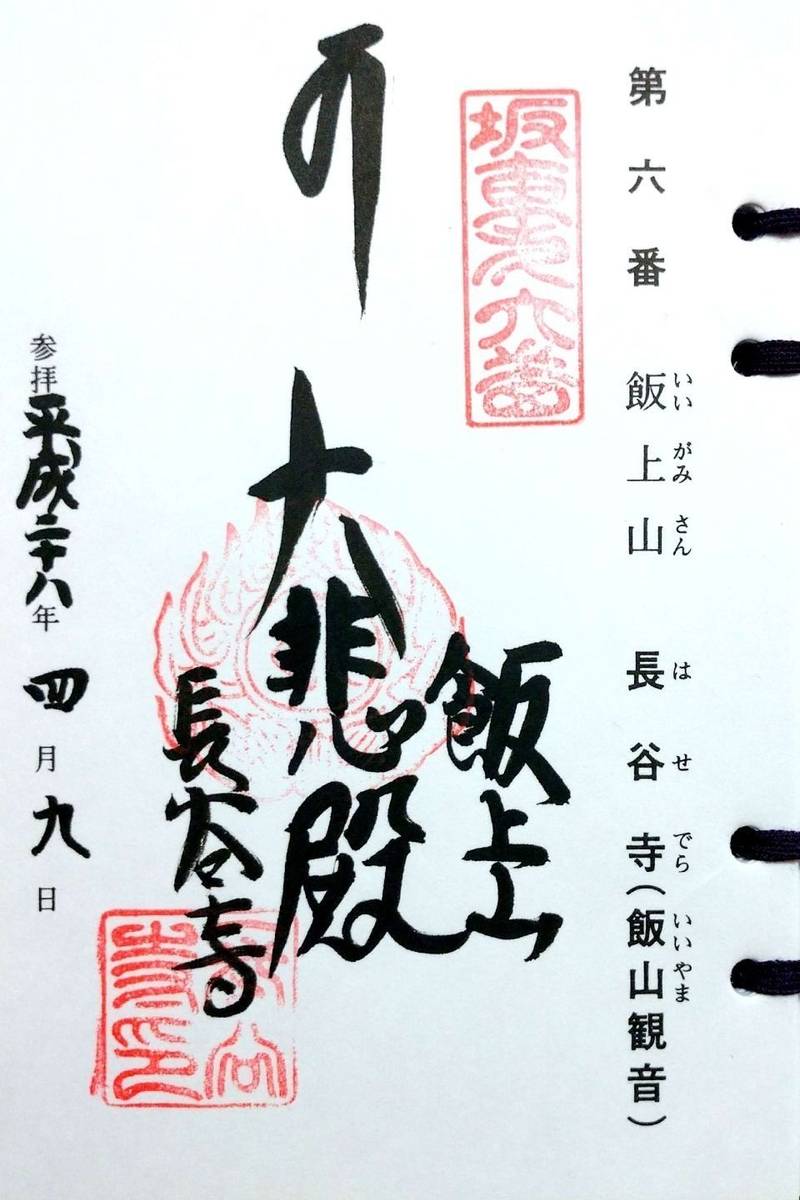 いいがみさん はせでら いいやま
第六番 飯上山 長谷寺(飯山観音)
坂東第六番
飯上山
大悲殿
長谷寺
参拝平成二十八年四月九日